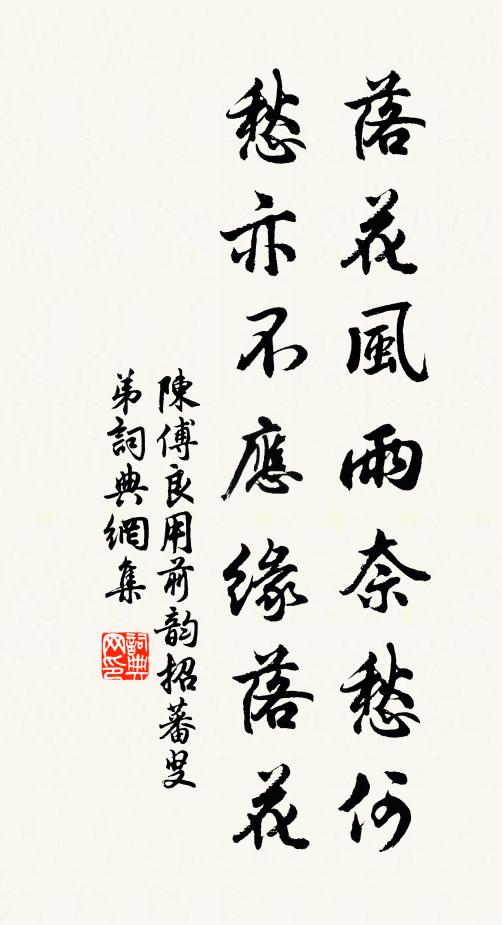 落花風雨奈愁何
愁亦不應緣落花
陳傅良用前韵招蕃叟
弟詞典網集
詞典
网印